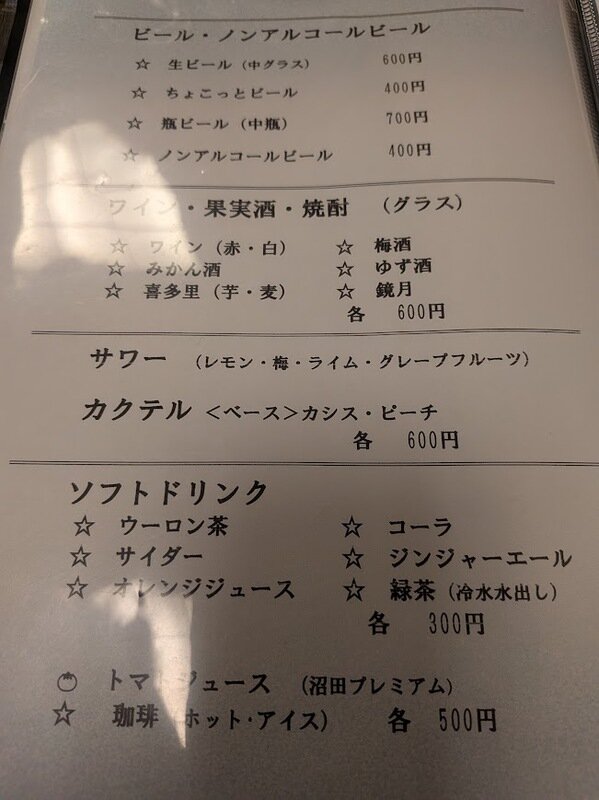 ビール・ノンアルコールビール
☆ 生ビール（中グラス） 600円
☆ ちょこっとビール 400円
☆ 瓶ビール（中瓶） 700円
☆ ノンアルコールビール 400円
ワイン・果実酒・焼酎 （グラス）
☆ ワイン（赤・白） ☆ 梅酒
☆ みかん酒 ☆ ゆず酒
☆ 喜多里（芋・麦） ☆ 鏡月
各 600円
サワー （レモン・梅・ライム・グレープフルーツ）
カクテル ＜ベース＞カシス・ピーチ
各 600円
ソフトドリンク
☆ ウーロン茶 ☆ コーラ
☆ サイダー ☆ ジンジャーエール
☆ オレンジジュース ☆ 緑茶（冷水水出し）
各 300円
トマトジュース （沼田プレミアム）
☆ 珈琲（ホット・アイス） 各 500円